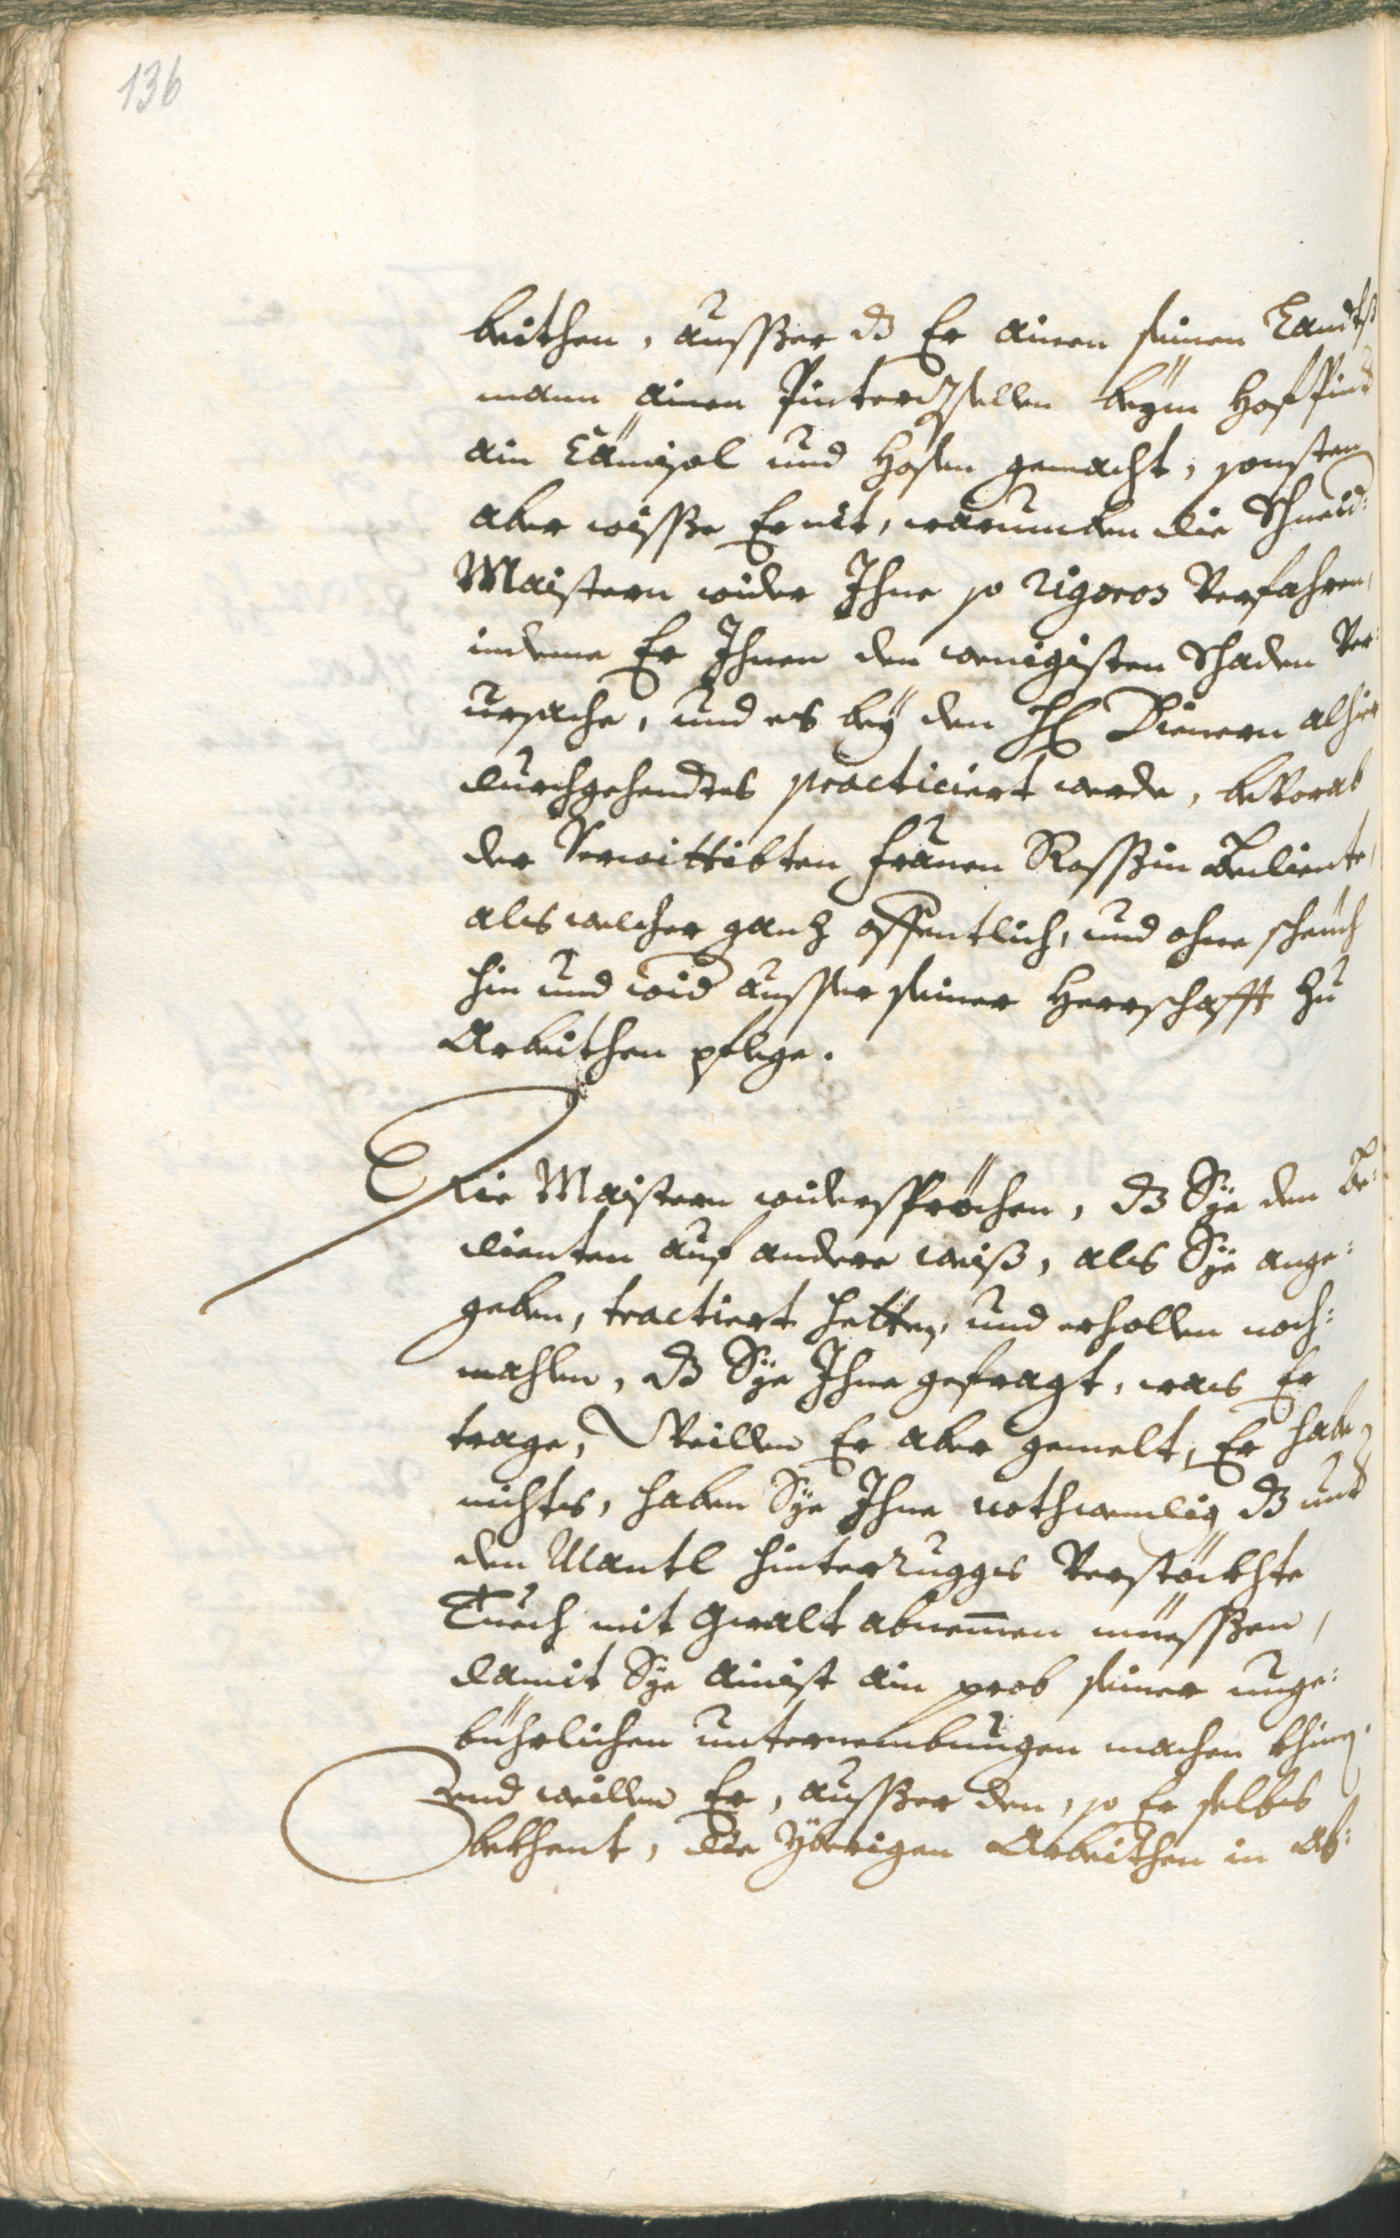 136
beithen, ausßer dß Er ainen seinen Landtß
mann ainen Pinterxsellen beym Hof Pind
ain Cämisol und Hosen gemacht, sonsten
aber wisße Er nit, warumben die Schneid:
Maistern wider Ihne so rigoros Verfahren,
indeme Er Ihnen den wenigisten Schaden Ver:
ursache, und es bey den H Dienern alhier
durchgehendtes practiciert werde, beVorab
der Verwittibten Frauen Rosßin Bediente,
als welcher ganz offentlich, und ohne scheuch
hin und wid ausser seiner Herrschafft zu
Arbeithen pflege.
Die Maistern widersprechen, dß Sye den Be:
dienten auf andere weiß, als Sye ange:
geben, tractiert hetten, und erhollen noch:
mahlen, dß Sye Ihne gefragt, was Er
trage, Weillen Er aber gemelt, Er habe
nichts, haben Sye Ihne nothwendig dß unt
den Mantl hinterruggs Verstöckhte
Tuech mit Gwalt abnemen müesßen,
damit Sye ainist ain prob seiner unge:
bührlichen unternembungen machen khinen.
Und weillen Er, ausßer den, so Er selbs
bekhent, die yberigen Arbeithen in Ab: